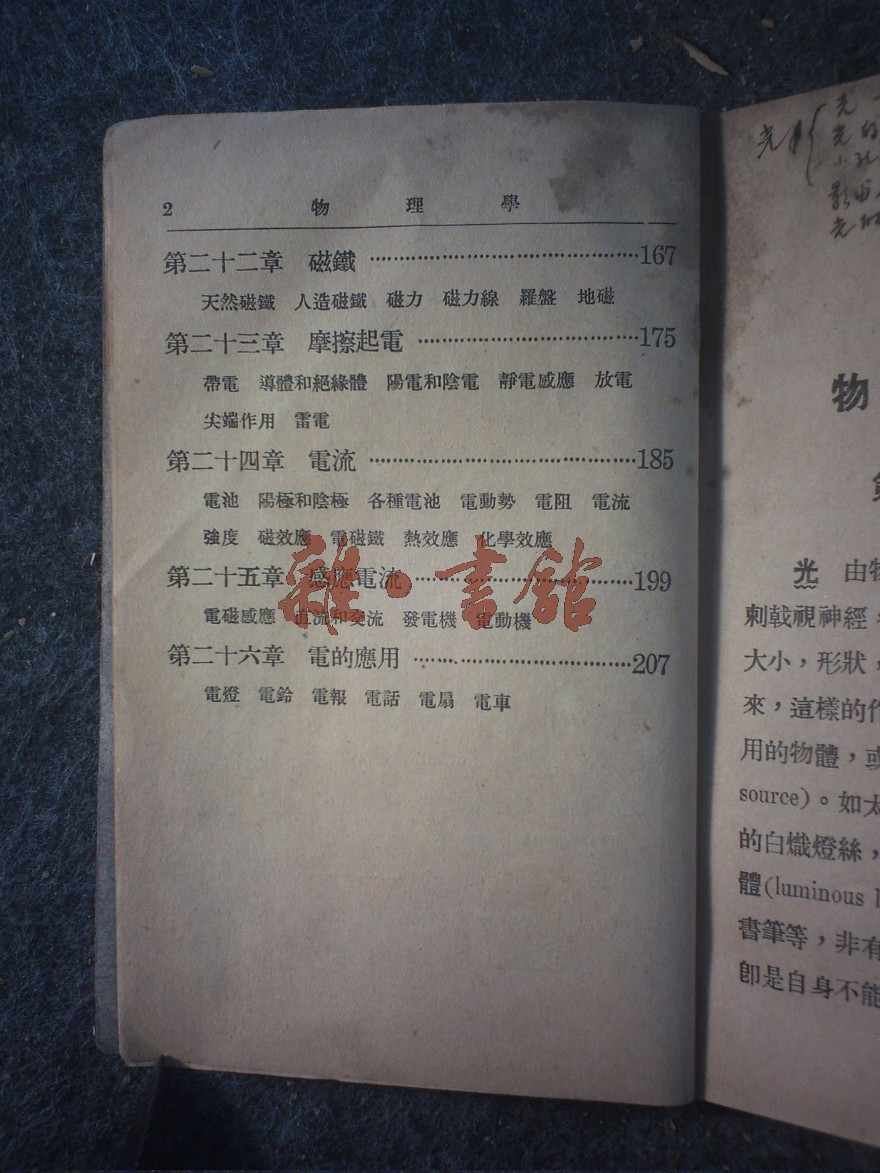 2 物 理 學
第二十二章 磁鐵 ……………………………167
天然磁鐵 人造磁鐵 磁力 磁力線 羅盤 地磁
第二十三章 摩擦起電 ………………………175
帶電 導體和絕緣體 陽電和陰電 靜電感應 放電
尖端作用 雷電
第二十四章 電流 ……………………………185
電池 陽極和陰極 各種電池 電動勢 電阻 電流
強度 磁效應 電磁鐵 熱效應 化學效應
第二十五章 感應電流 ………………………199
電磁感應 直流和交流 發電機 電動機
第二十六章 電的應用 ………………………207
電燈 電鈴 電報 電話 電扇 電車
雜·書館
光 光
光的
小孔
光
物
光 由物
刺戟視神經
大小，形狀，
來，這樣的作
用的物體，或
source)。如太
的白熾燈絲，
體(luminous
書筆等，非有
卽是自身不能